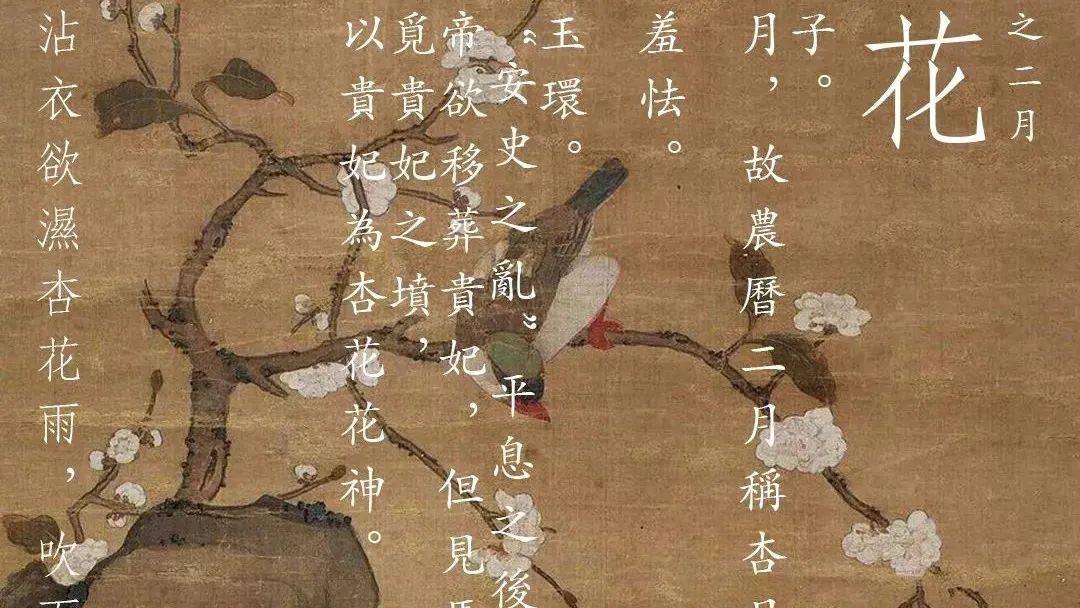 之二月
花
子。
月，故農曆二月稱杏月
羞怯。
玉環。
“安史之亂”平息之後
帝欲移葬貴妃，但見馬
覓貴妃之墳，
以貴妃為杏花花神。
沾衣欲濕杏花雨，吹面